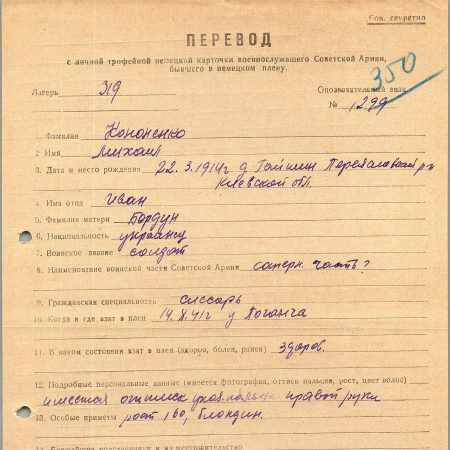 Сов. секретно
ПЕРЕВОД
с личной трофейной немецкой карточки военнослужащего Советской Армии,
бывшего в немецком плену.
350
Лагерь 319 Опознавательный знак
№ 1299
1. Фамилия Кононенко
2 Имя Михаил
3. Дата и место рождения 22.3.1914г д.
Киевской обл.
4. Имя отца Иван
5. Фамилия матери Бордун
6. Национальность украинец
7. Воинское звание солдат
8. Наименование воинской части Советской Армии саперн. часть?
9. Гражданская специальность слесарь
10. Когда и где взят в плен 14.8.41г у Логанча
11. В каком состоянии взят в плен (здоров, болен, ранен) здоров.
12. Подробные персональные данные (имеется фотография, оттиск пальцев, рост, цвет волос)
имеется оттиск указ. пальца правой руки
13. Особые приметы рост 160, блондин.
14. Ближайшие родственники и их местожительство